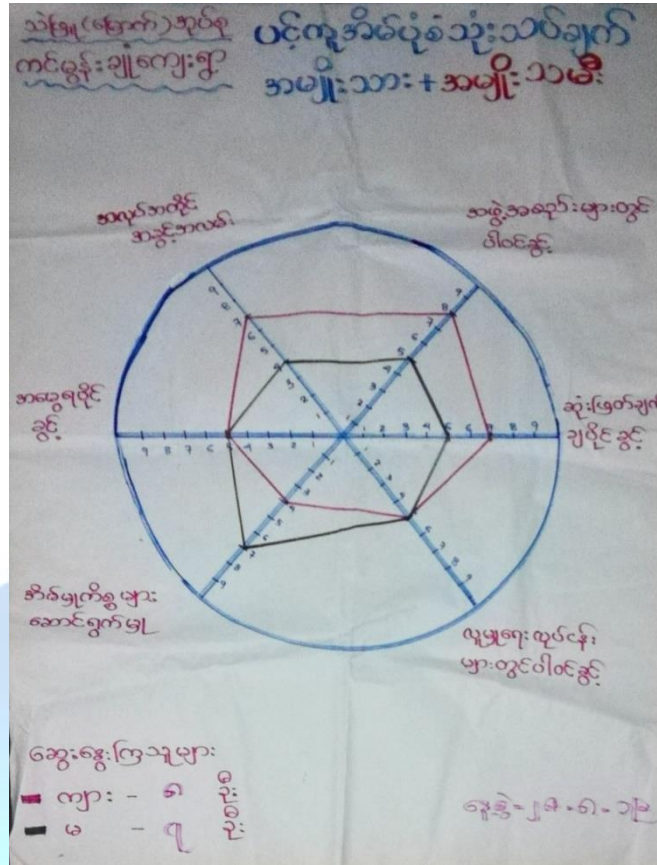 သဲဖြူ(မြောက်)အုပ်စု
ကင်မွန်းချုံကျေးရွာ
ပင့်ကူအိမ်ပုံစံသုံးသပ်ချက်
အမျိုးသား+အမျိုးသမီး
အလုပ်အကိုင်
အခွင့်အလမ်း
အဖွဲ့အစည်းများတွင်
ပါဝင်ခွင့်
အမွေရပိုင်
ခွင့်
ဆုံးဖြတ်ချက်
ချပိုင်ခွင့်
အိမ်မှုကိစ္စများ
ဆောင်ရွက်မှု
လူမှုရေးလုပ်ငန်း
များတွင်ပါဝင်ခွင့်
ဆွေးနွေးကြသူများ
ကျား - ၈ ဦး
မ - ၇ ဦး